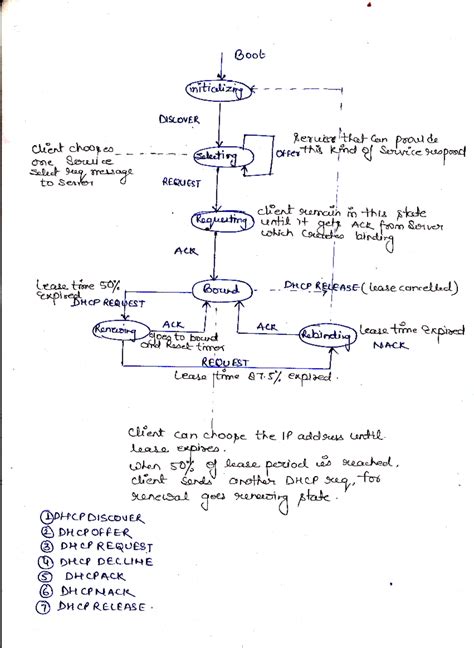 Boot
initializing
DISCOVER
Client chooses
one Service
Select req message
to Server
Selecting
OFFER
Servers that can provide
this kind of Service respond
REQUEST
Requesting
Client remain in this state
until it gets ACK from Server
which creates binding
ACK
Bound
DHCP RELEASE (lease cancelled)
Lease time 50%
expired
DHCP REQUEST
Renewing
ACK
goes to bound
and Reset timer
ACK
Rebinding
Lease time expired
NACK
REQUEST
Lease time 87.5% expired.
Client can choose the IP address until
lease expires.
When 50% of lease period is reached,
client sends another DHCP req, for
renewal goes renewing state.
① DHCP DISCOVER
② DHCP OFFER
③ DHCP REQUEST
④ DHCP DECLINE
⑤ DHCP ACK
⑥ DHCP NACK
⑦ DHCP RELEASE.